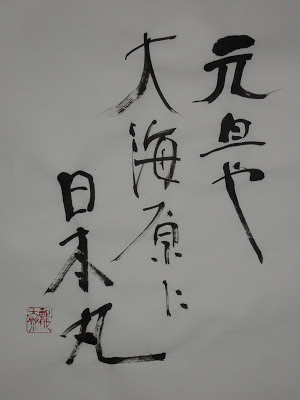 元旦や
大海原に
日本丸